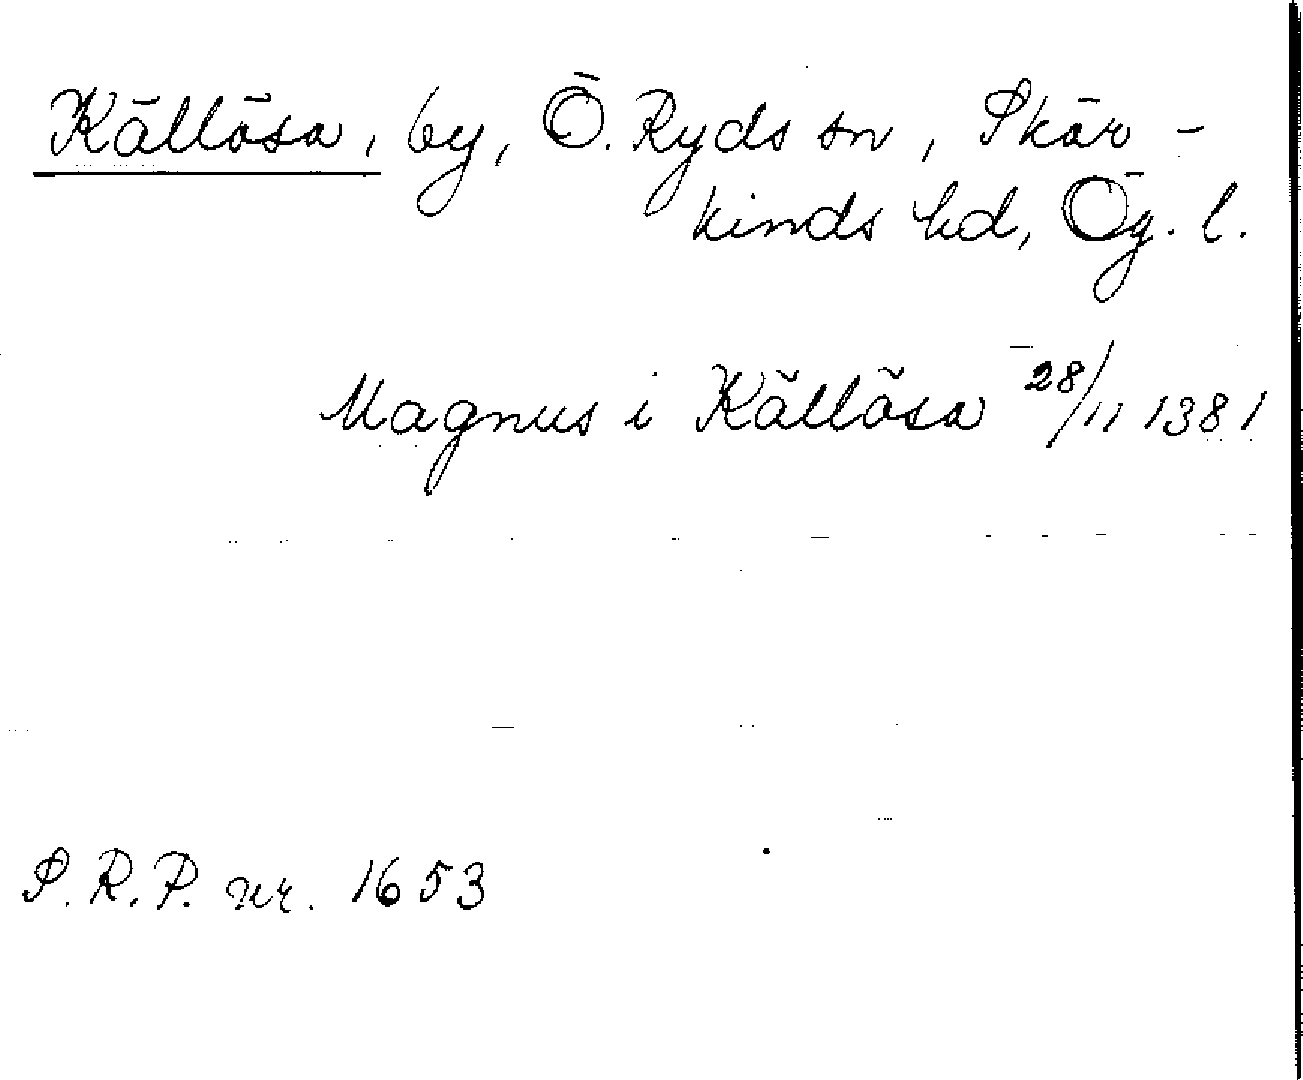 Källösa, by, Ö. Ryds sn, Skär-
kinds hd, Ög. l.
Magnus i Källösa 28/11 1381
S. R. P. nr. 1653